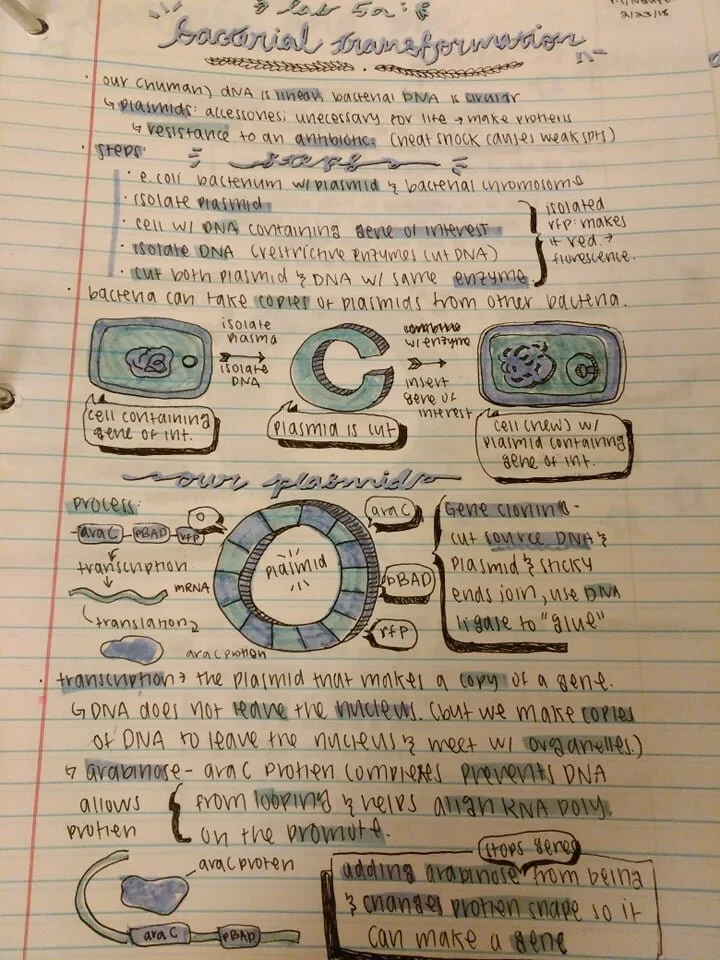 lab 5a:
2/23/18
bacterial transformation
• our (human) DNA is linear, bacterial DNA is circular
↳ plasmids: accessories; unnecessary for life → make protiens
↳ resistance to an antibiotic. (heat shock causes weak spts)
• steps:
steps
• e. coli bacterium w/ plasmid & bacterial chromosome
• isolate plasmid
• cell w/ DNA containing gene of interest
• isolate DNA (restrictive enzymes cut DNA)
• cut both plasmid & DNA w/ same enzyme.
isolated
rfp: makes
it red. →
flurescence.
• bacteria can take copies of plasmids from other bacteria.
isolate
plasma
isolate
DNA
combine
w/ enzyme
insert
gene of
interest
cell containing
gene of int.
plasmid is cut
cell (new) w/
plasmid containing
gene of int.
our plasmid
process:
araC pBAD rfp
O
transcription
mRNA
translation
arac protien
plasmid
araC
pBAD
rfp
Gene cloning -
cut source DNA &
plasmid & sticky
ends join, use DNA
ligase to "glue"
• transcription → the plasmid that makes a copy of a gene.
↳ DNA does not leave the nucleus. (but we make copies
of DNA to leave the nucleus & meet w/ organelles.)
↳ arabinose - araC protien complexes prevents DNA
allows
protien
from looping & helps align RNA poly.
on the promote.
arac protein
araC pBAD
stops genes
adding arabinose from being
& changes protien shape so it
can make a gene